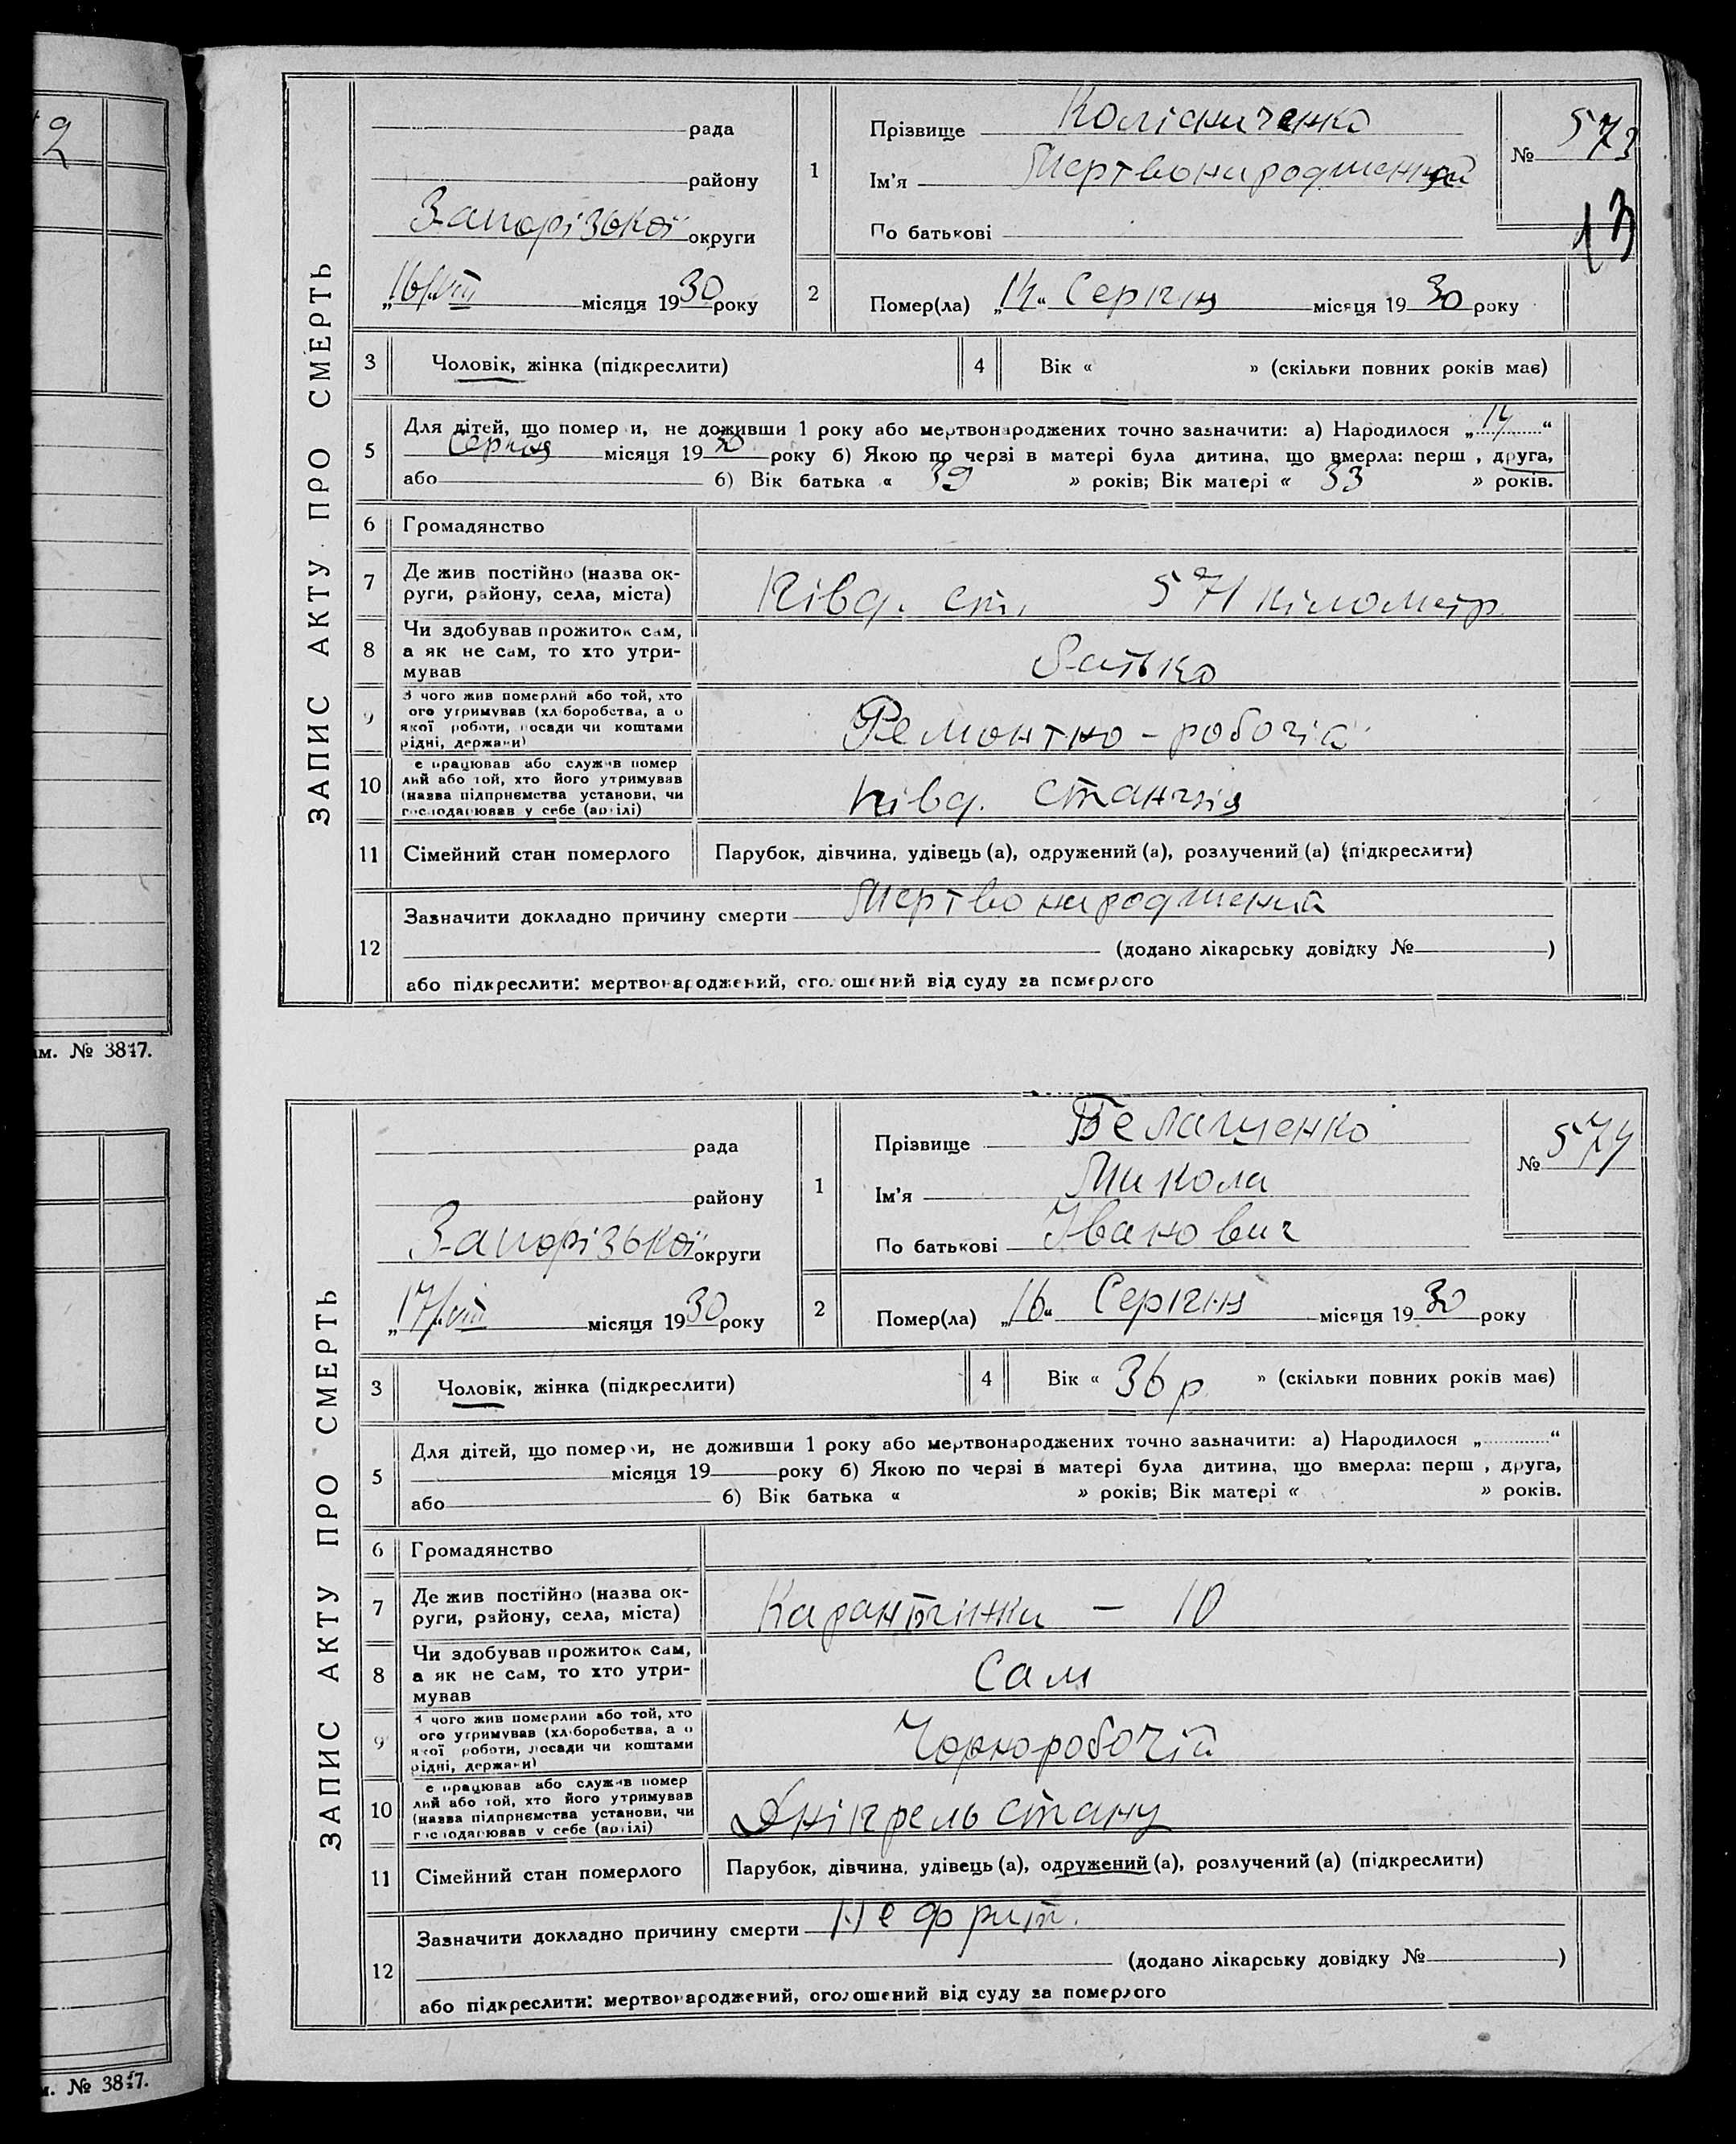 2
ам. № 3817.
м. № 3817.
ЗАПИС АКТУ ПРО СМЕРТЬ
рада
району
Запорізької округи
„16/VIII місяця 1930 року
1
Прізвище
Ім'я Мертвонароджений
По батькові
№ 573
13
2
Помер(ла) „14“ Серпня місяця 1930 року
3 Чоловік, жінка (підкреслити)
4 Вік « » (скільки повних років має)
5
Для дітей, що померли, не доживши 1 року або мертвонароджених точно зазначити: а) Народилося „14“
Серпня місяця 1930 року б) Якою по черзі в матері була дитина, що вмерла: перш , друга,
або б) Вік батька « 39 » років; Вік матері « 33 » років.
6 Громадянство
7
Де жив постійно (назва ок-
руги, району, села, міста)
Півд. ст. 571 кілометр
8
Чи здобував прожиток сам,
а як не сам, то хто утри-
мував
Батько
9
З чого жив померлий або той, хто
ого утримував (хліборобства, а о
якої роботи, посади чи коштами
рідні, держави)
Ремонтно-робочій
10
е працював або служив помер
лий або той, хто його утримував
(назва підприємства установи, чи
господарював у себе (артілі)
півд. станція
11 Сімейний стан померлого
Парубок, дівчина, удівець (а), одружений (а), розлучений (а) (підкреслити)
12
Зазначити докладно причину смерти Мертвонароджений
(додано лікарську довідку № )
або підкреслити: мертвонароджений, оголошений від суду за померлого
ЗАПИС АКТУ ПРО СМЕРТЬ
рада
району
Запорізької округи
„17/VIII місяця 1930 року
1
Прізвище Белащенко
Ім'я Микола
По батькові Іванович
№ 574
2
Помер(ла) „16“ Серпня місяця 1930 року
3 Чоловік, жінка (підкреслити)
4 Вік « 36 р » (скільки повних років має)
5
Для дітей, що померли, не доживши 1 року або мертвонароджених точно зазначити: а) Народилося „ “
місяця 19 року б) Якою по черзі в матері була дитина, що вмерла: перш , друга,
або б) Вік батька « » років; Вік матері « » років.
6 Громадянство
7
Де жив постійно (назва ок-
руги, району, села, міста)
Карантинка — 10
8
Чи здобував прожиток сам,
а як не сам, то хто утри-
мував
Сам
9
З чого жив померлий або той, хто
ого утримував (хліборобства, а о
якої роботи, посади чи коштами
рідні, держави)
Чорноробочій
10
е працював або служив помер
лий або той, хто його утримував
(назва підприємства установи, чи
господарював у себе (артілі)
11 Сімейний стан померлого
Парубок, дівчина, удівець (а), одружений (а), розлучений (а) (підкреслити)
12
Зазначити докладно причину смерти Нефрит.
(додано лікарську довідку № )
або підкреслити: мертвонароджений, оголошений від суду за померлого